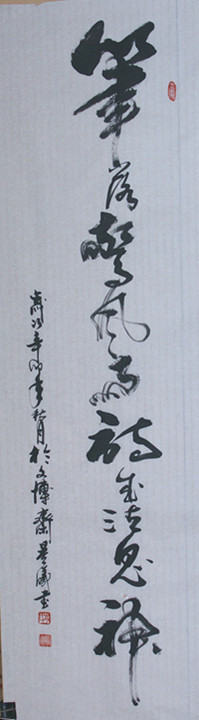 筆落驚風雨詩成泣鬼神
歲次辛卯年秋月於文博齋書